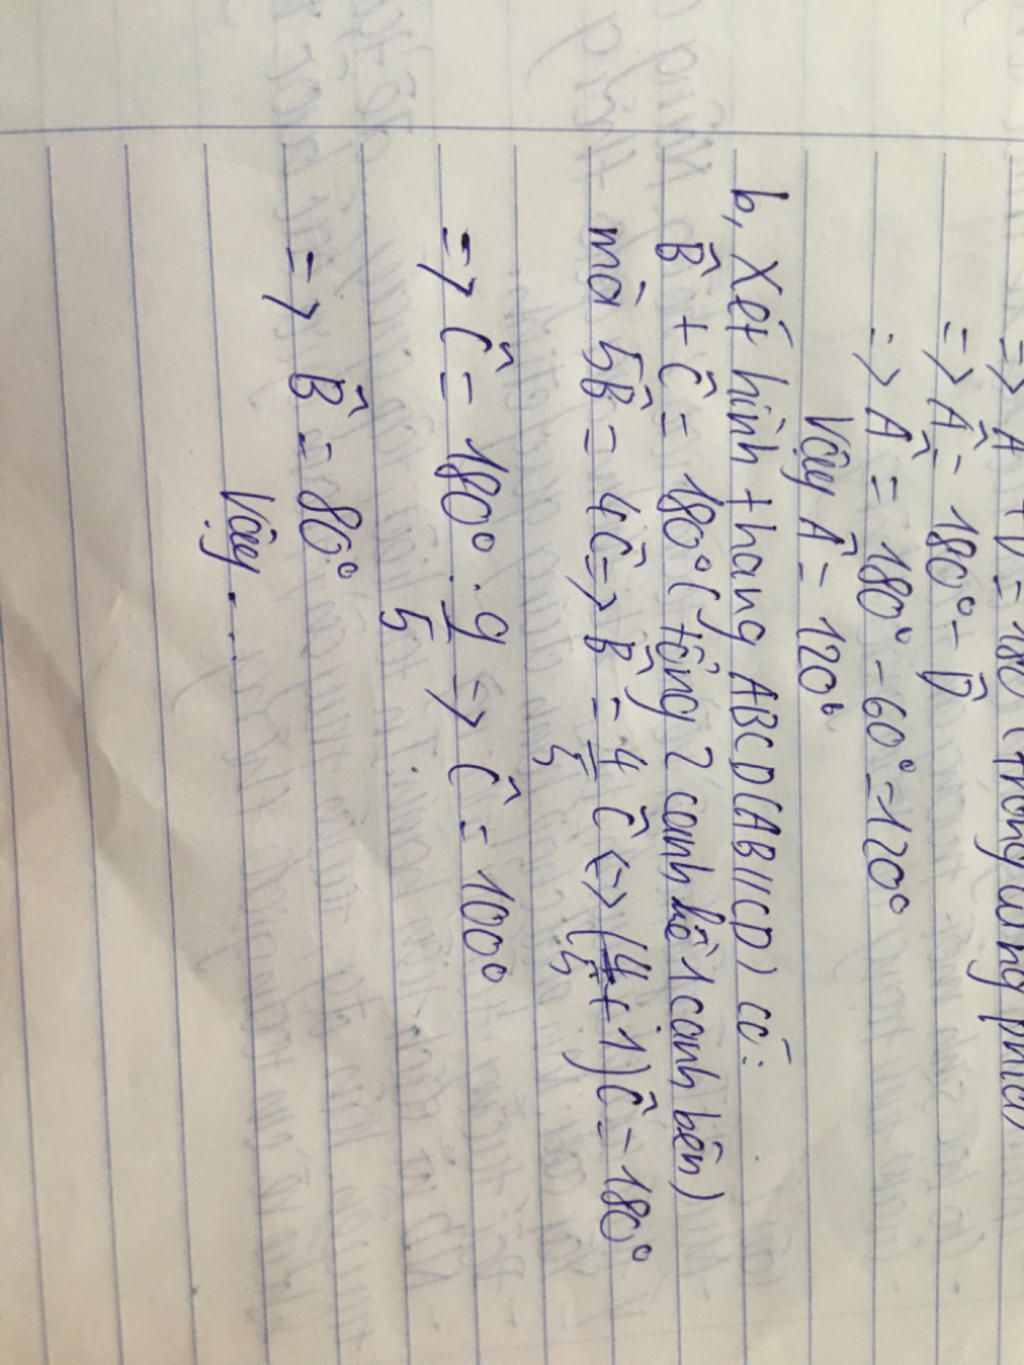 => Â + D̂ = 180° (trong cùng phía)
=> Â = 180° - D̂
=> Â = 180° - 60° = 120°
Vậy Â = 120°
b, Xét hình thang ABCD (AB // CD) có:
B̂ + Ĉ = 180° (tổng 2 canh kề 1 cạnh bên)
mà 5B̂ = 4Ĉ => B̂ = 4/5 Ĉ <=> (4/5 + 1) Ĉ = 180°
=> Ĉ = 180° . 9/5 => Ĉ = 100°
=> B̂ = 80°
Vậy ...